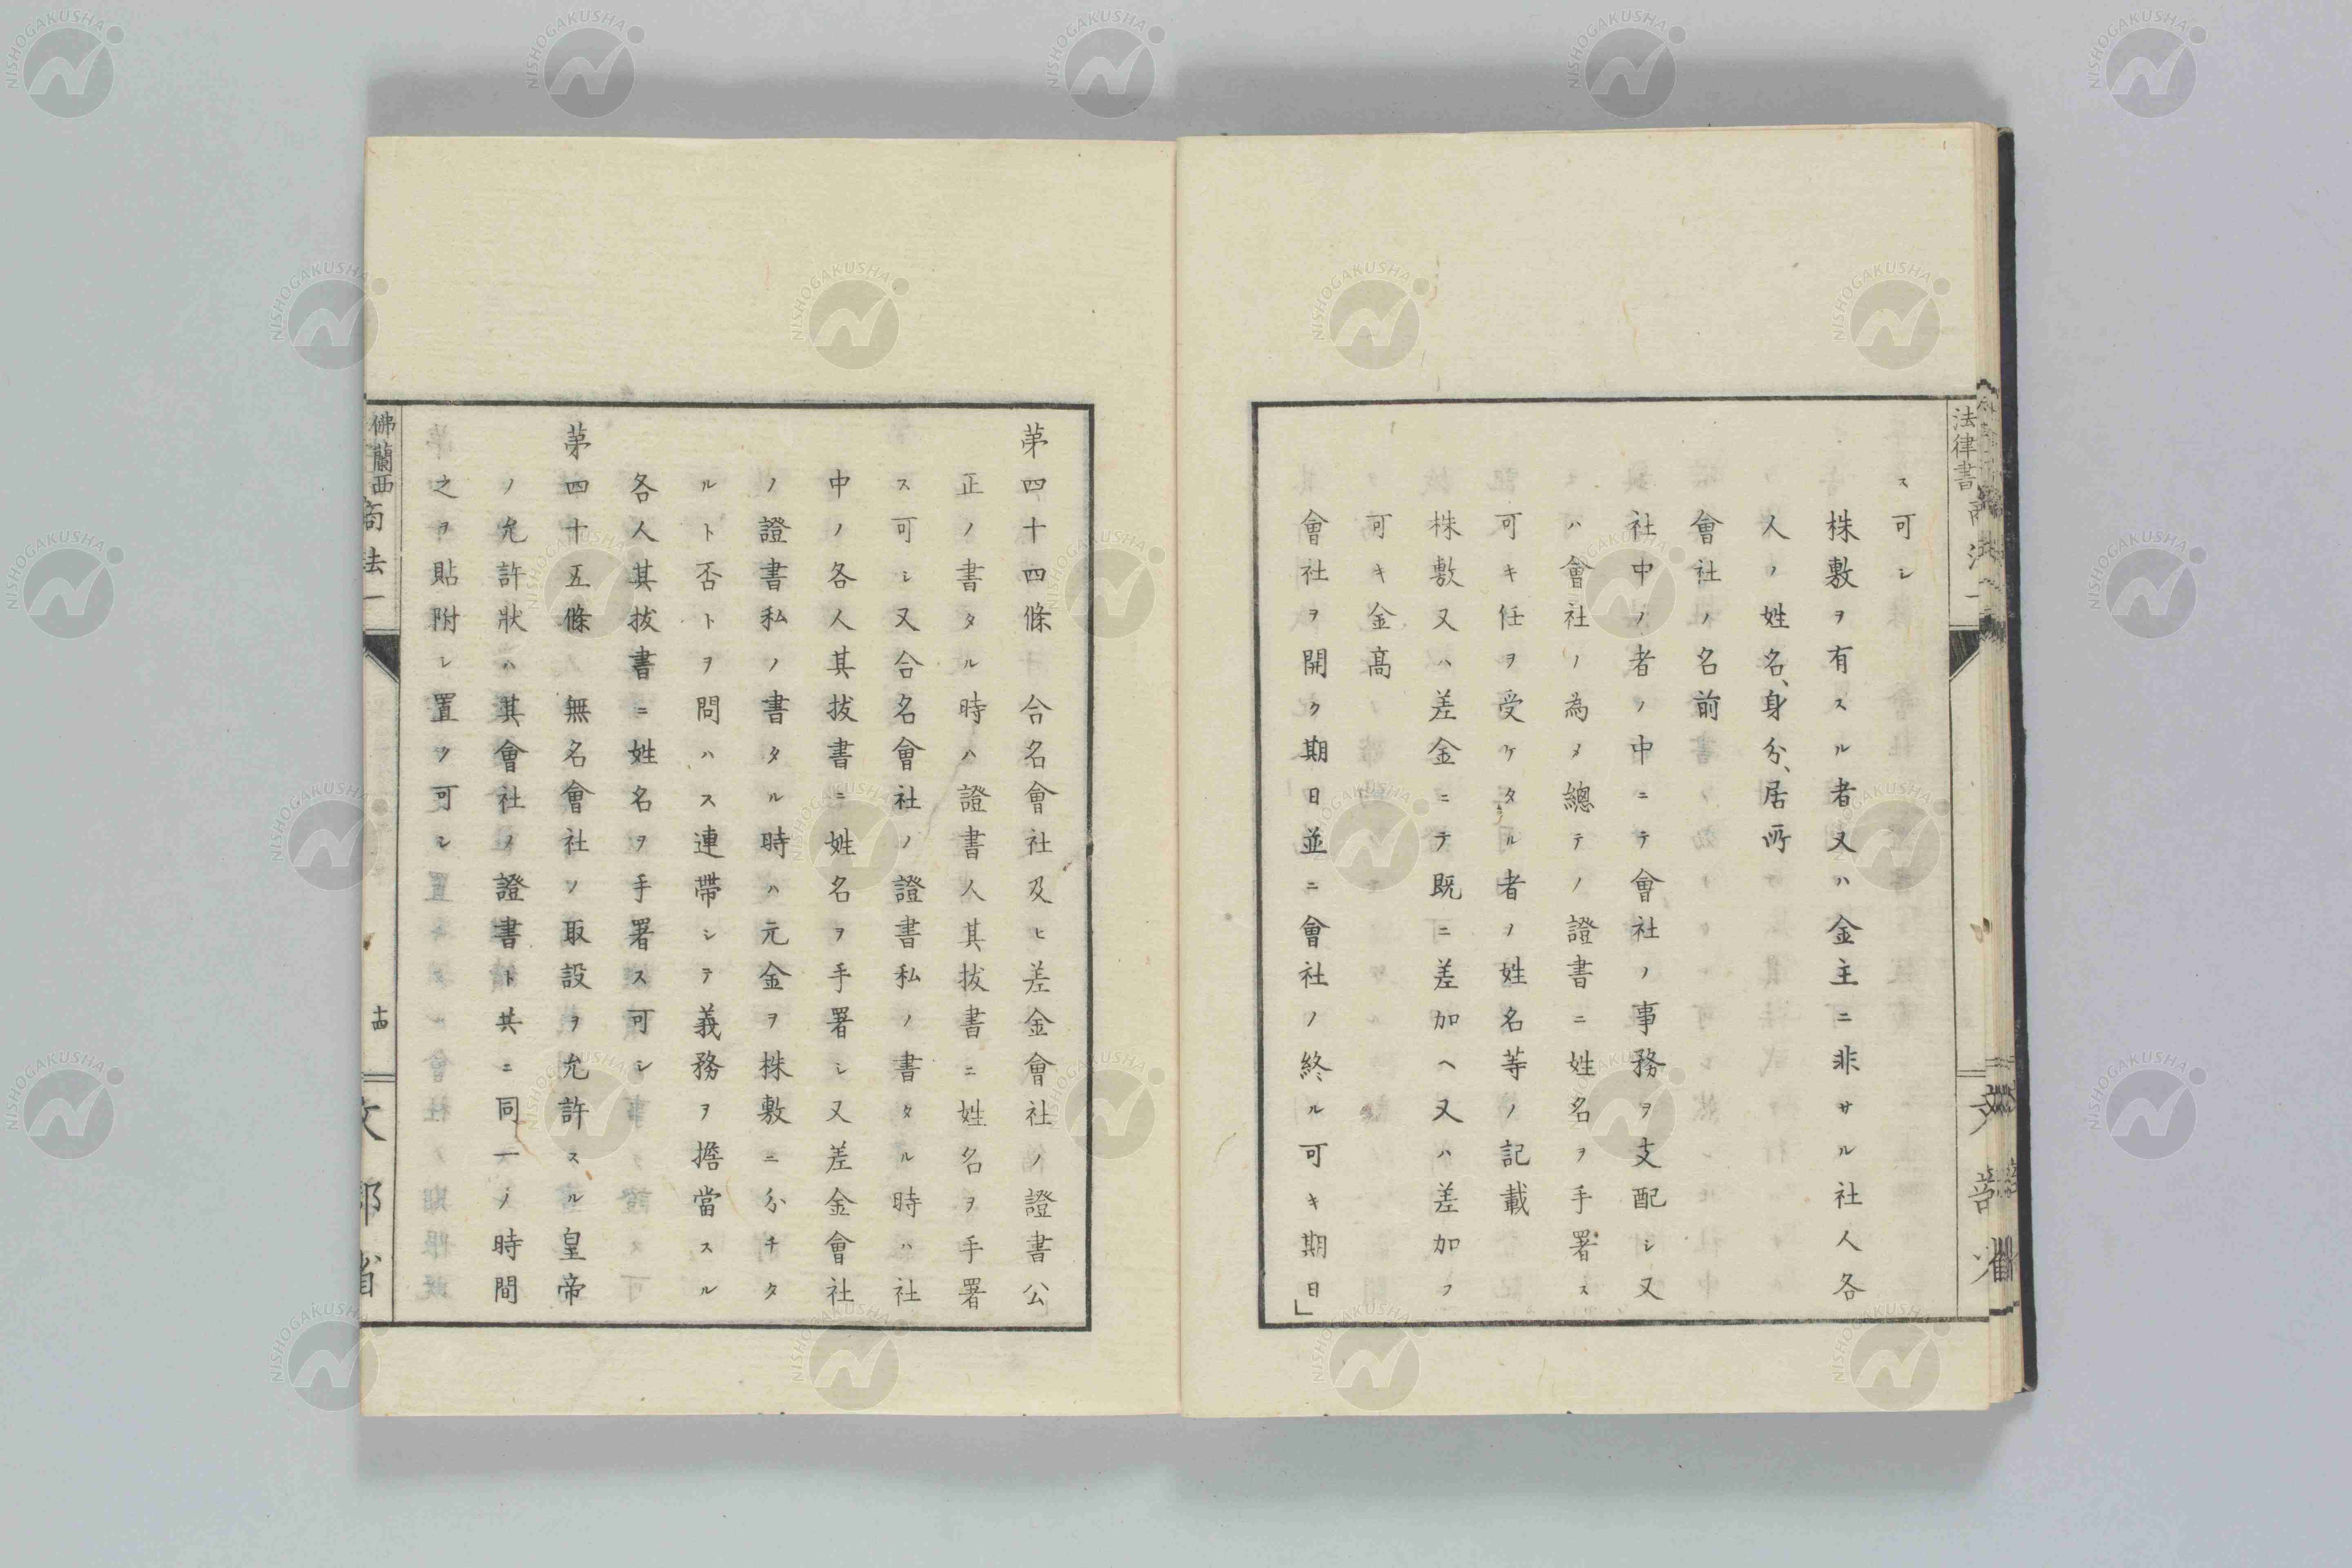 法律書
ス可シ
株敷ヲ有スル者又ハ金主ニ非サル社人各
人ノ姓名、身分、居所
會社ノ名前
社中ノ者ノ中ニテ會社ノ事務ヲ支配シ又
ハ會社ノ為メ總テノ證書ニ姓名ヲ手署ス
可キ任ヲ受ケタル者ノ姓名等ノ記載
株敷又ハ差金ニテ既ニ差加ヘ又ハ差加フ
可キ金高
會社ヲ開ク期日並ニ會社ノ終ル可キ期日」
第四十四條 合名會社及ヒ差金會社ノ證書公
正ノ書タル時ハ證書人其拔書ニ姓名ヲ手署
ス可シ又合名會社ノ證書私ノ書タル時ハ社
中ノ各人其拔書ニ姓名ヲ手署シ又差金會社
ノ證書私ノ書タル時ハ元金ヲ株敷ニ分チタ
ルト否トヲ問ハス連帶シテ義務ヲ擔當スル
各人其拔書ニ姓名ヲ手署ス可シ
第四十五條 無名會社ノ取設ヲ允許スル皇帝
ノ允許狀ハ其會社ノ證書ト共ニ同一ノ時間
之ヲ貼附シ置ク可シ
佛蘭西商法一 十四 文部省
NISHOGAKUSHA